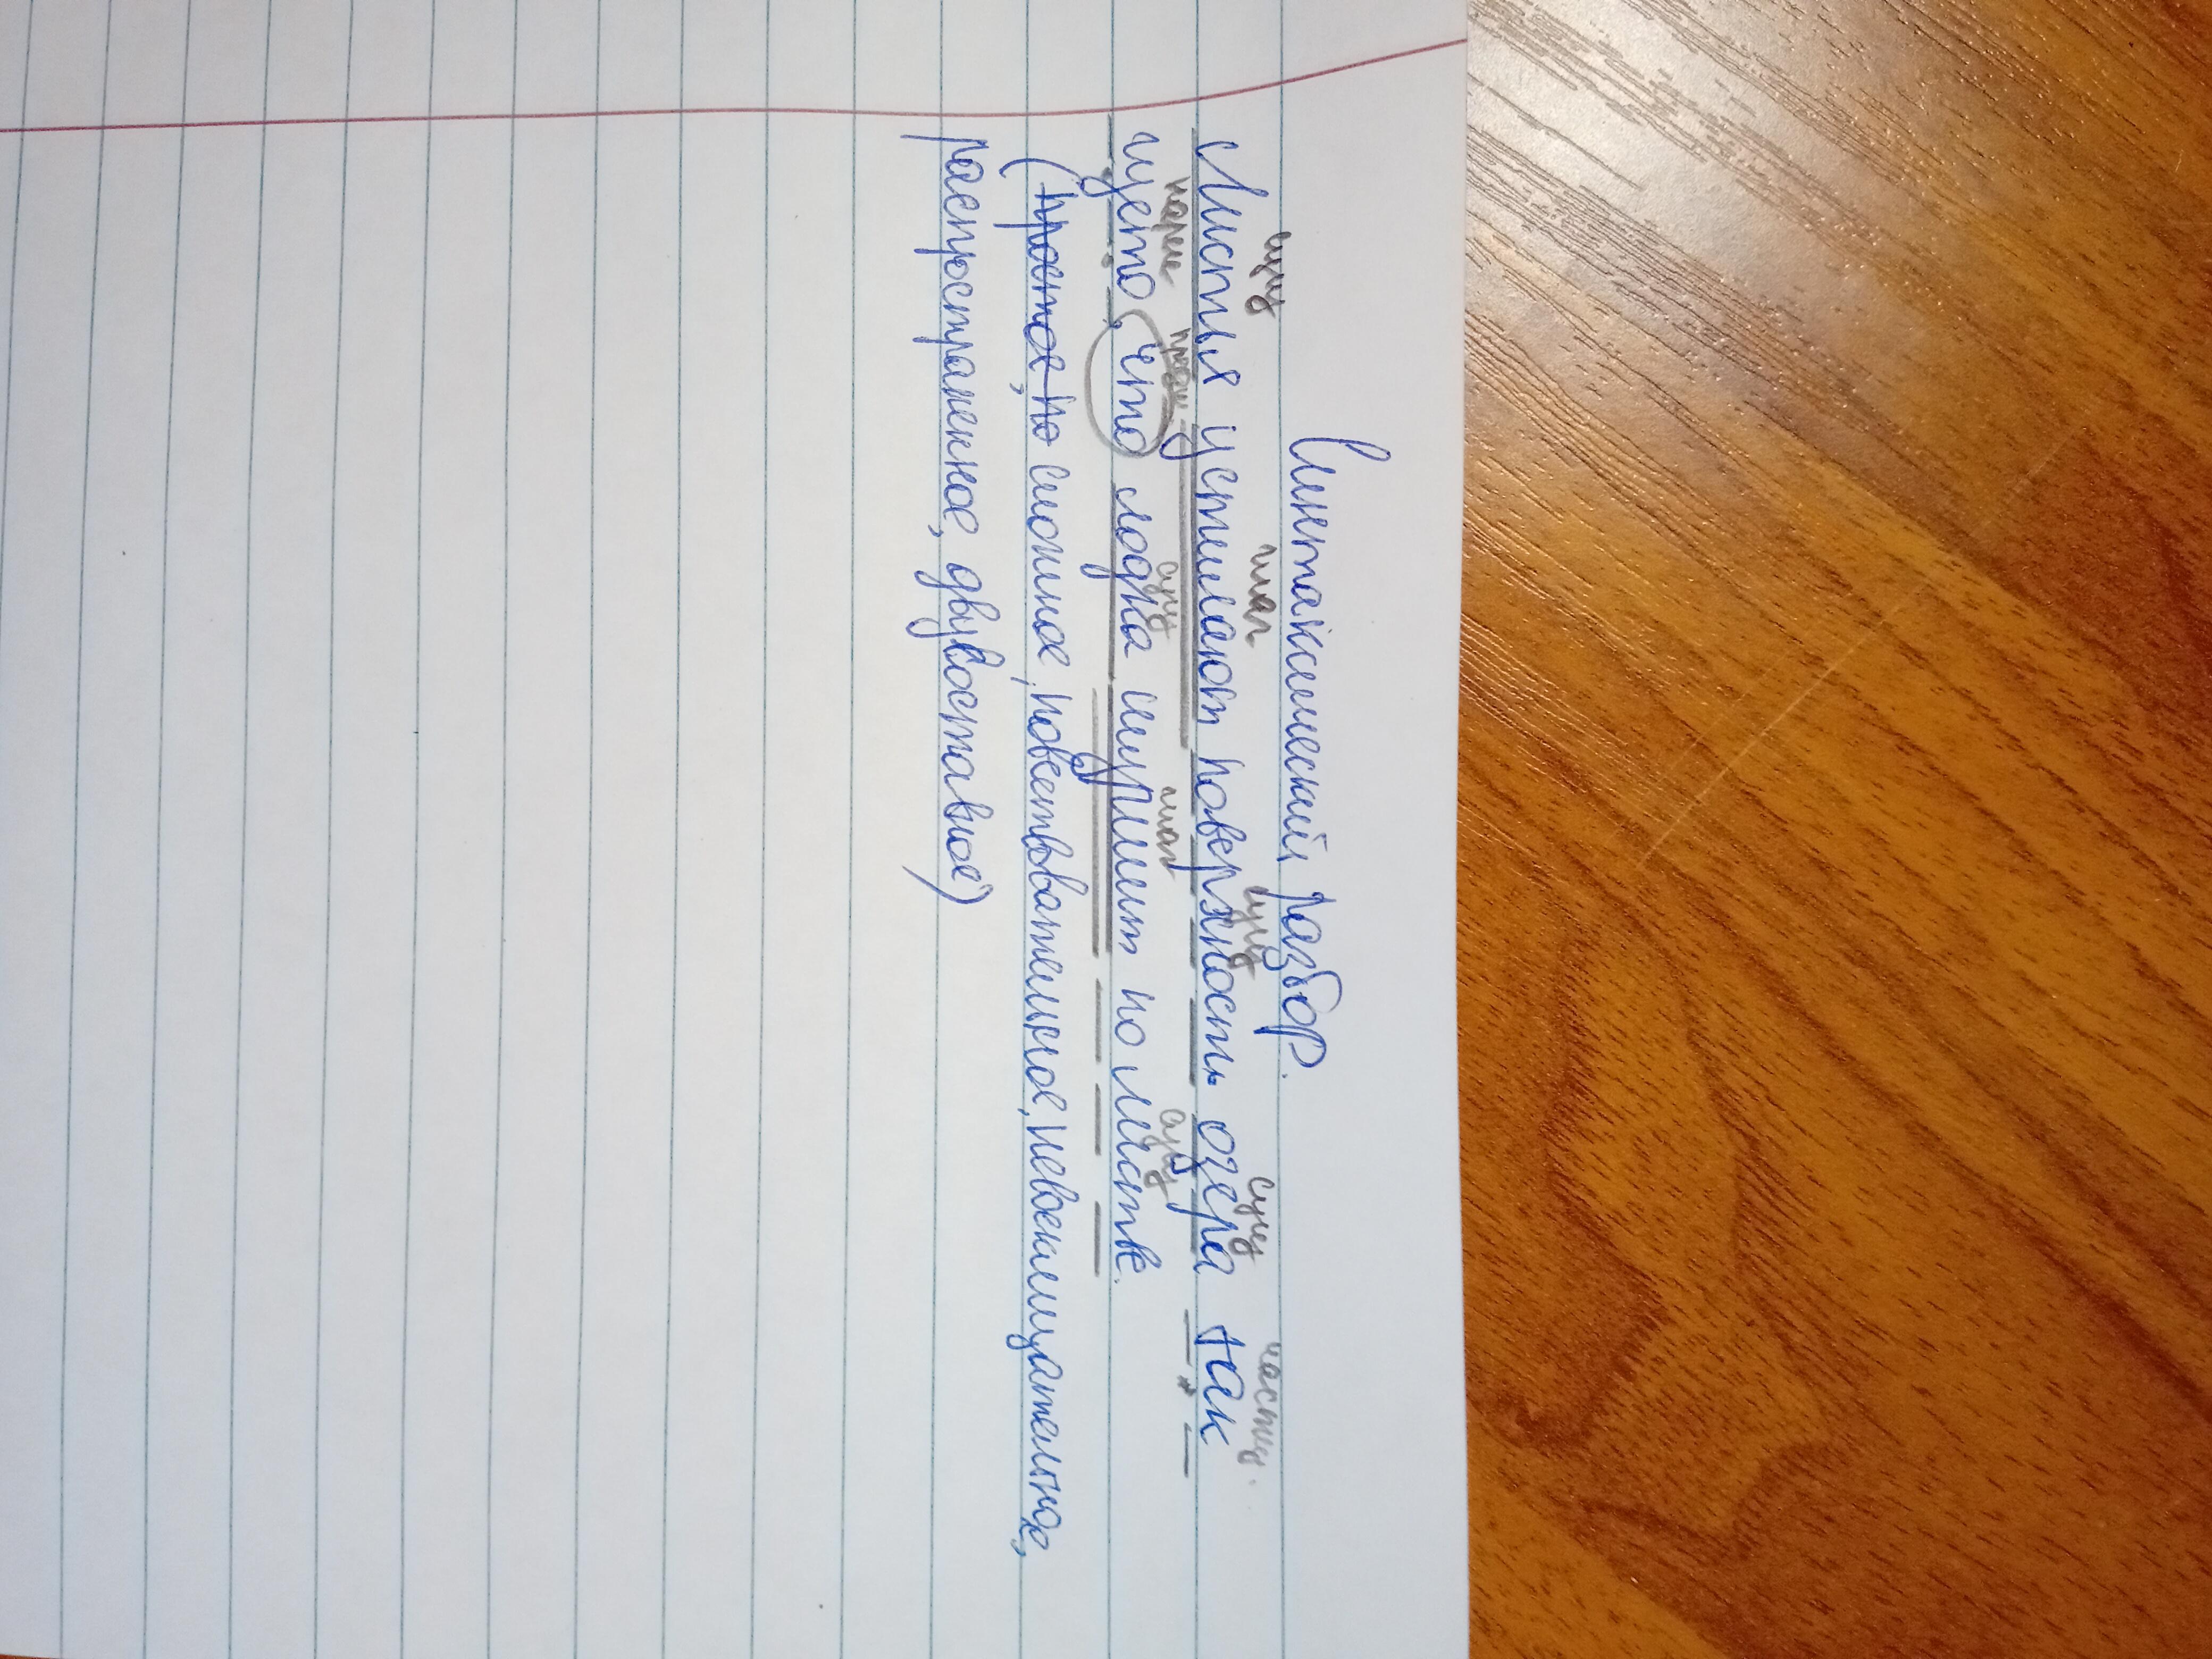 Синтаксический разбор.
сущ глаг сущ сущ частиц.
Листья устилают поверхность озера так
нареч сущ глаг сущ
густо, что лодка шуршит по листве.
(простое, по сложное, повествовательное, невосклицательное,
распространенное, двувоставное)